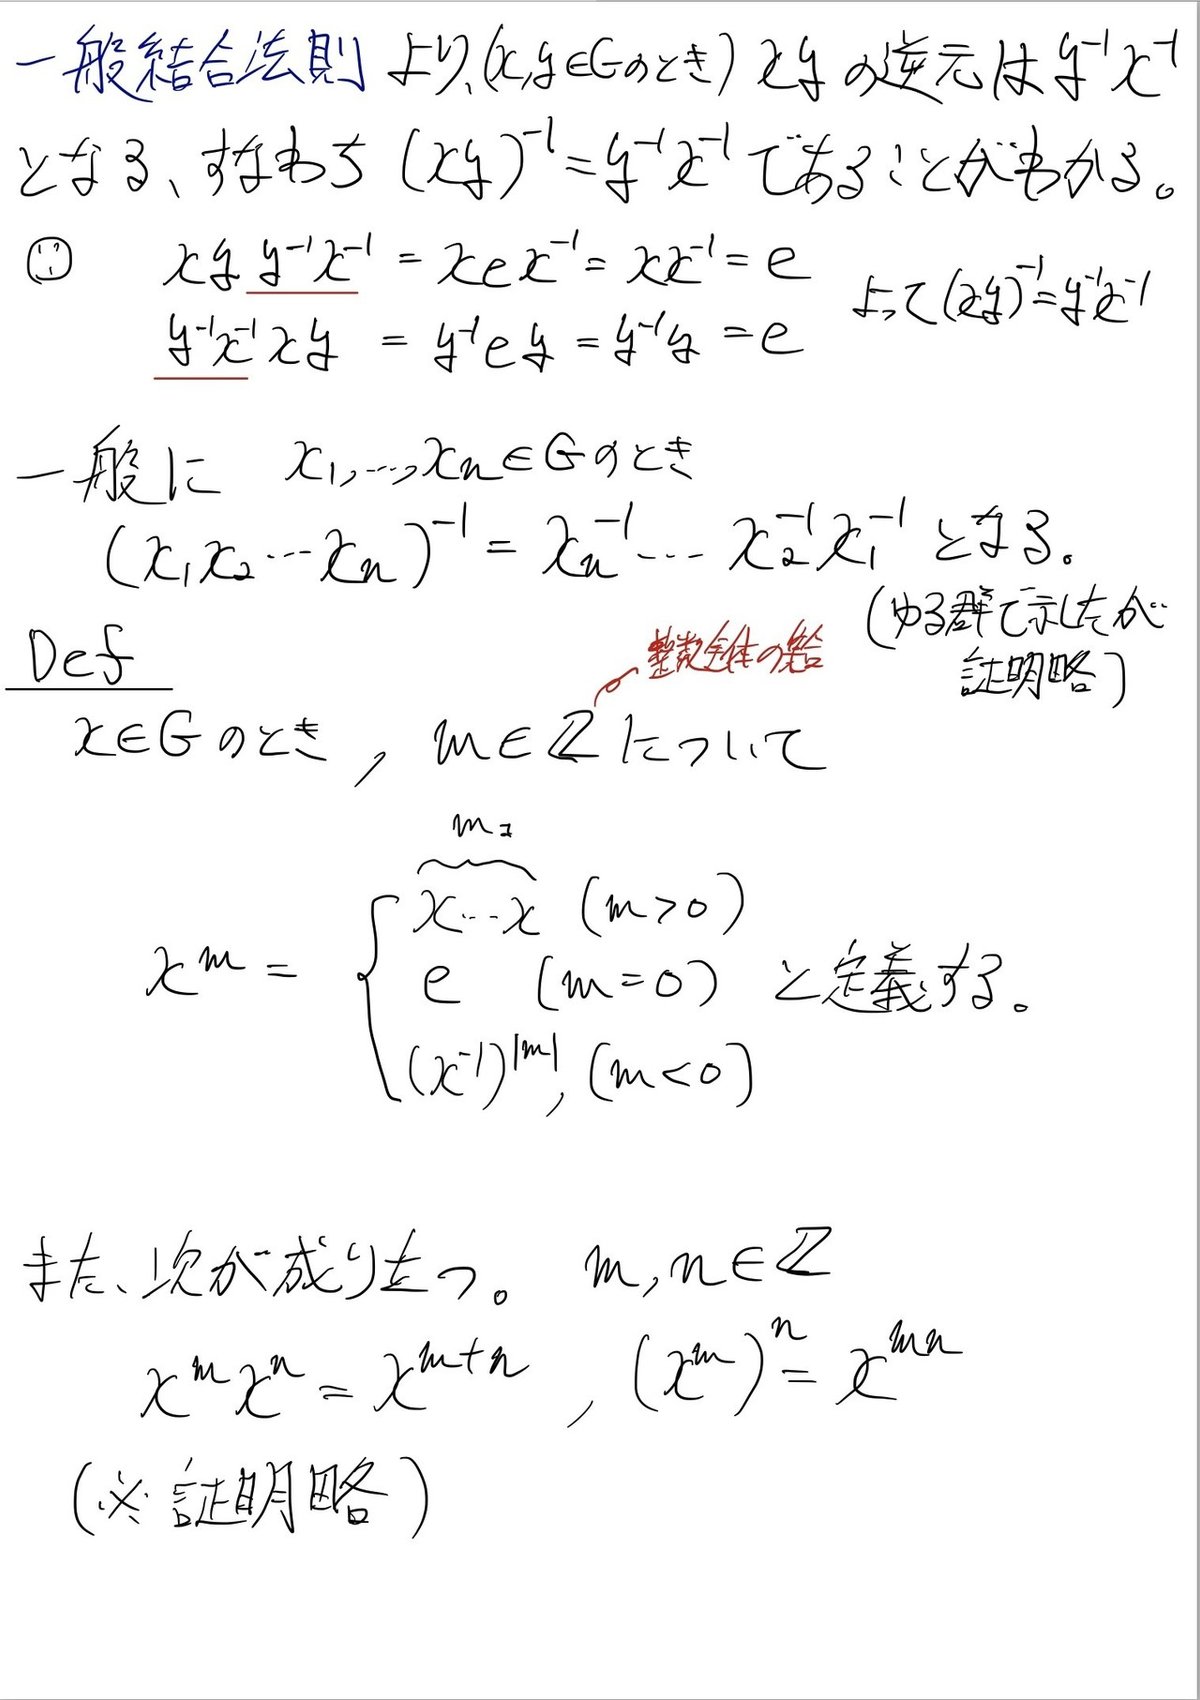 一般結合法則より、(x,y∈Gのとき) xyの逆元はy⁻¹x⁻¹
となる、すなわち (xy)⁻¹=y⁻¹x⁻¹であることがわかる。
∵ xyy⁻¹x⁻¹ = xex⁻¹ = xx⁻¹ = e
y⁻¹x⁻¹xy = y⁻¹ey = y⁻¹y = e
よって(xy)⁻¹=y⁻¹x⁻¹
一般に x₁,…,xₙ∈Gのとき
(x₁x₂…xₙ)⁻¹ = xₙ⁻¹… x₂⁻¹x₁⁻¹ となる。
(ゆる群で示したが
証明略)
Def
整数全体の集合
x∈Gのとき, m∈ℤについて
mコ
x…x (m>0)
xᵐ = { e (m=0) と定義する。
(x⁻¹)^|m|, (m<0)
また、次が成り立つ。 m,n∈ℤ
xᵐxⁿ = xᵐ⁺ⁿ , (xᵐ)ⁿ = xᵐⁿ
(※証明略)